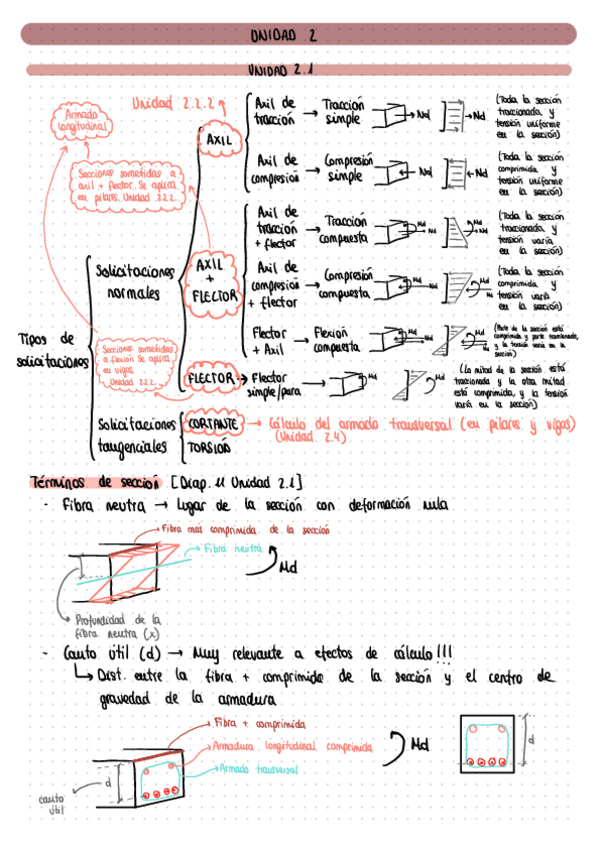 UNIDAD 2
UNIDAD 2.1
Armado
longitudinal
Unidad 2.2.2
Secciones sometidas a
axil + flector. Se aplica
en pilares. Unidad 2.2.2.
Tipos de
solicitaciones
Solicitaciones
normales
AXIL
Axil de
tracción
→ Tracción
simple
Nd
Nd
(Toda la sección
traccionada y
tensión uniforme
en la sección)
Axil de
compresión
→ Compresión
simple
Nd
Nd
(Toda la sección
comprimida y
tensión uniforme
en la sección)
AXIL
+
FLECTOR
Axil de
tracción
+ flector
→ Tracción
compuesta
Md
Nd
Md
Nd
(Toda la sección
traccionada y
tensión varía
en la sección)
Axil de
compresión
+ flector
→ Compresión
compuesta
Md
Nd
Md
Nd
(Toda la sección
comprimida y
tensión varía
en la sección)
Flector
+ Axil
→ Flexión
compuesta
Md
Nd
Md
Nd
(Parte de la sección está
comprimida y parte traccionada,
y la tensión varía en la
sección)
Secciones sometidas
a flexión Se aplica
en vigas.
Unidad 2.2.2.
FLECTOR
→ Flector
simple/pura
Md
Md
(La mitad de la sección está
traccionada y la otra mitad
está comprimida, y la tensión
varía en la sección)
Solicitaciones
tangenciales
CORTANTE
→ Cálculo del armado transversal (en pilares y vigas)
(Unidad 2.4)
TORSIÓN
Términos de sección [Diap. 11 Unidad 2.1]
- Fibra neutra → Lugar de la sección con deformación nula
Fibra más comprimida de la sección
Fibra neutra
Md
Profundidad de la
fibra neutra (x)
- Canto útil (d) → Muy relevante a efectos de cálculo!!!
↳ Dist. entre la fibra + comprimida de la sección y el centro de
gravedad de la armadura
Fibra + comprimida
Armadura longitudinal comprimida
Armado transversal
Md
d
canto
útil
d